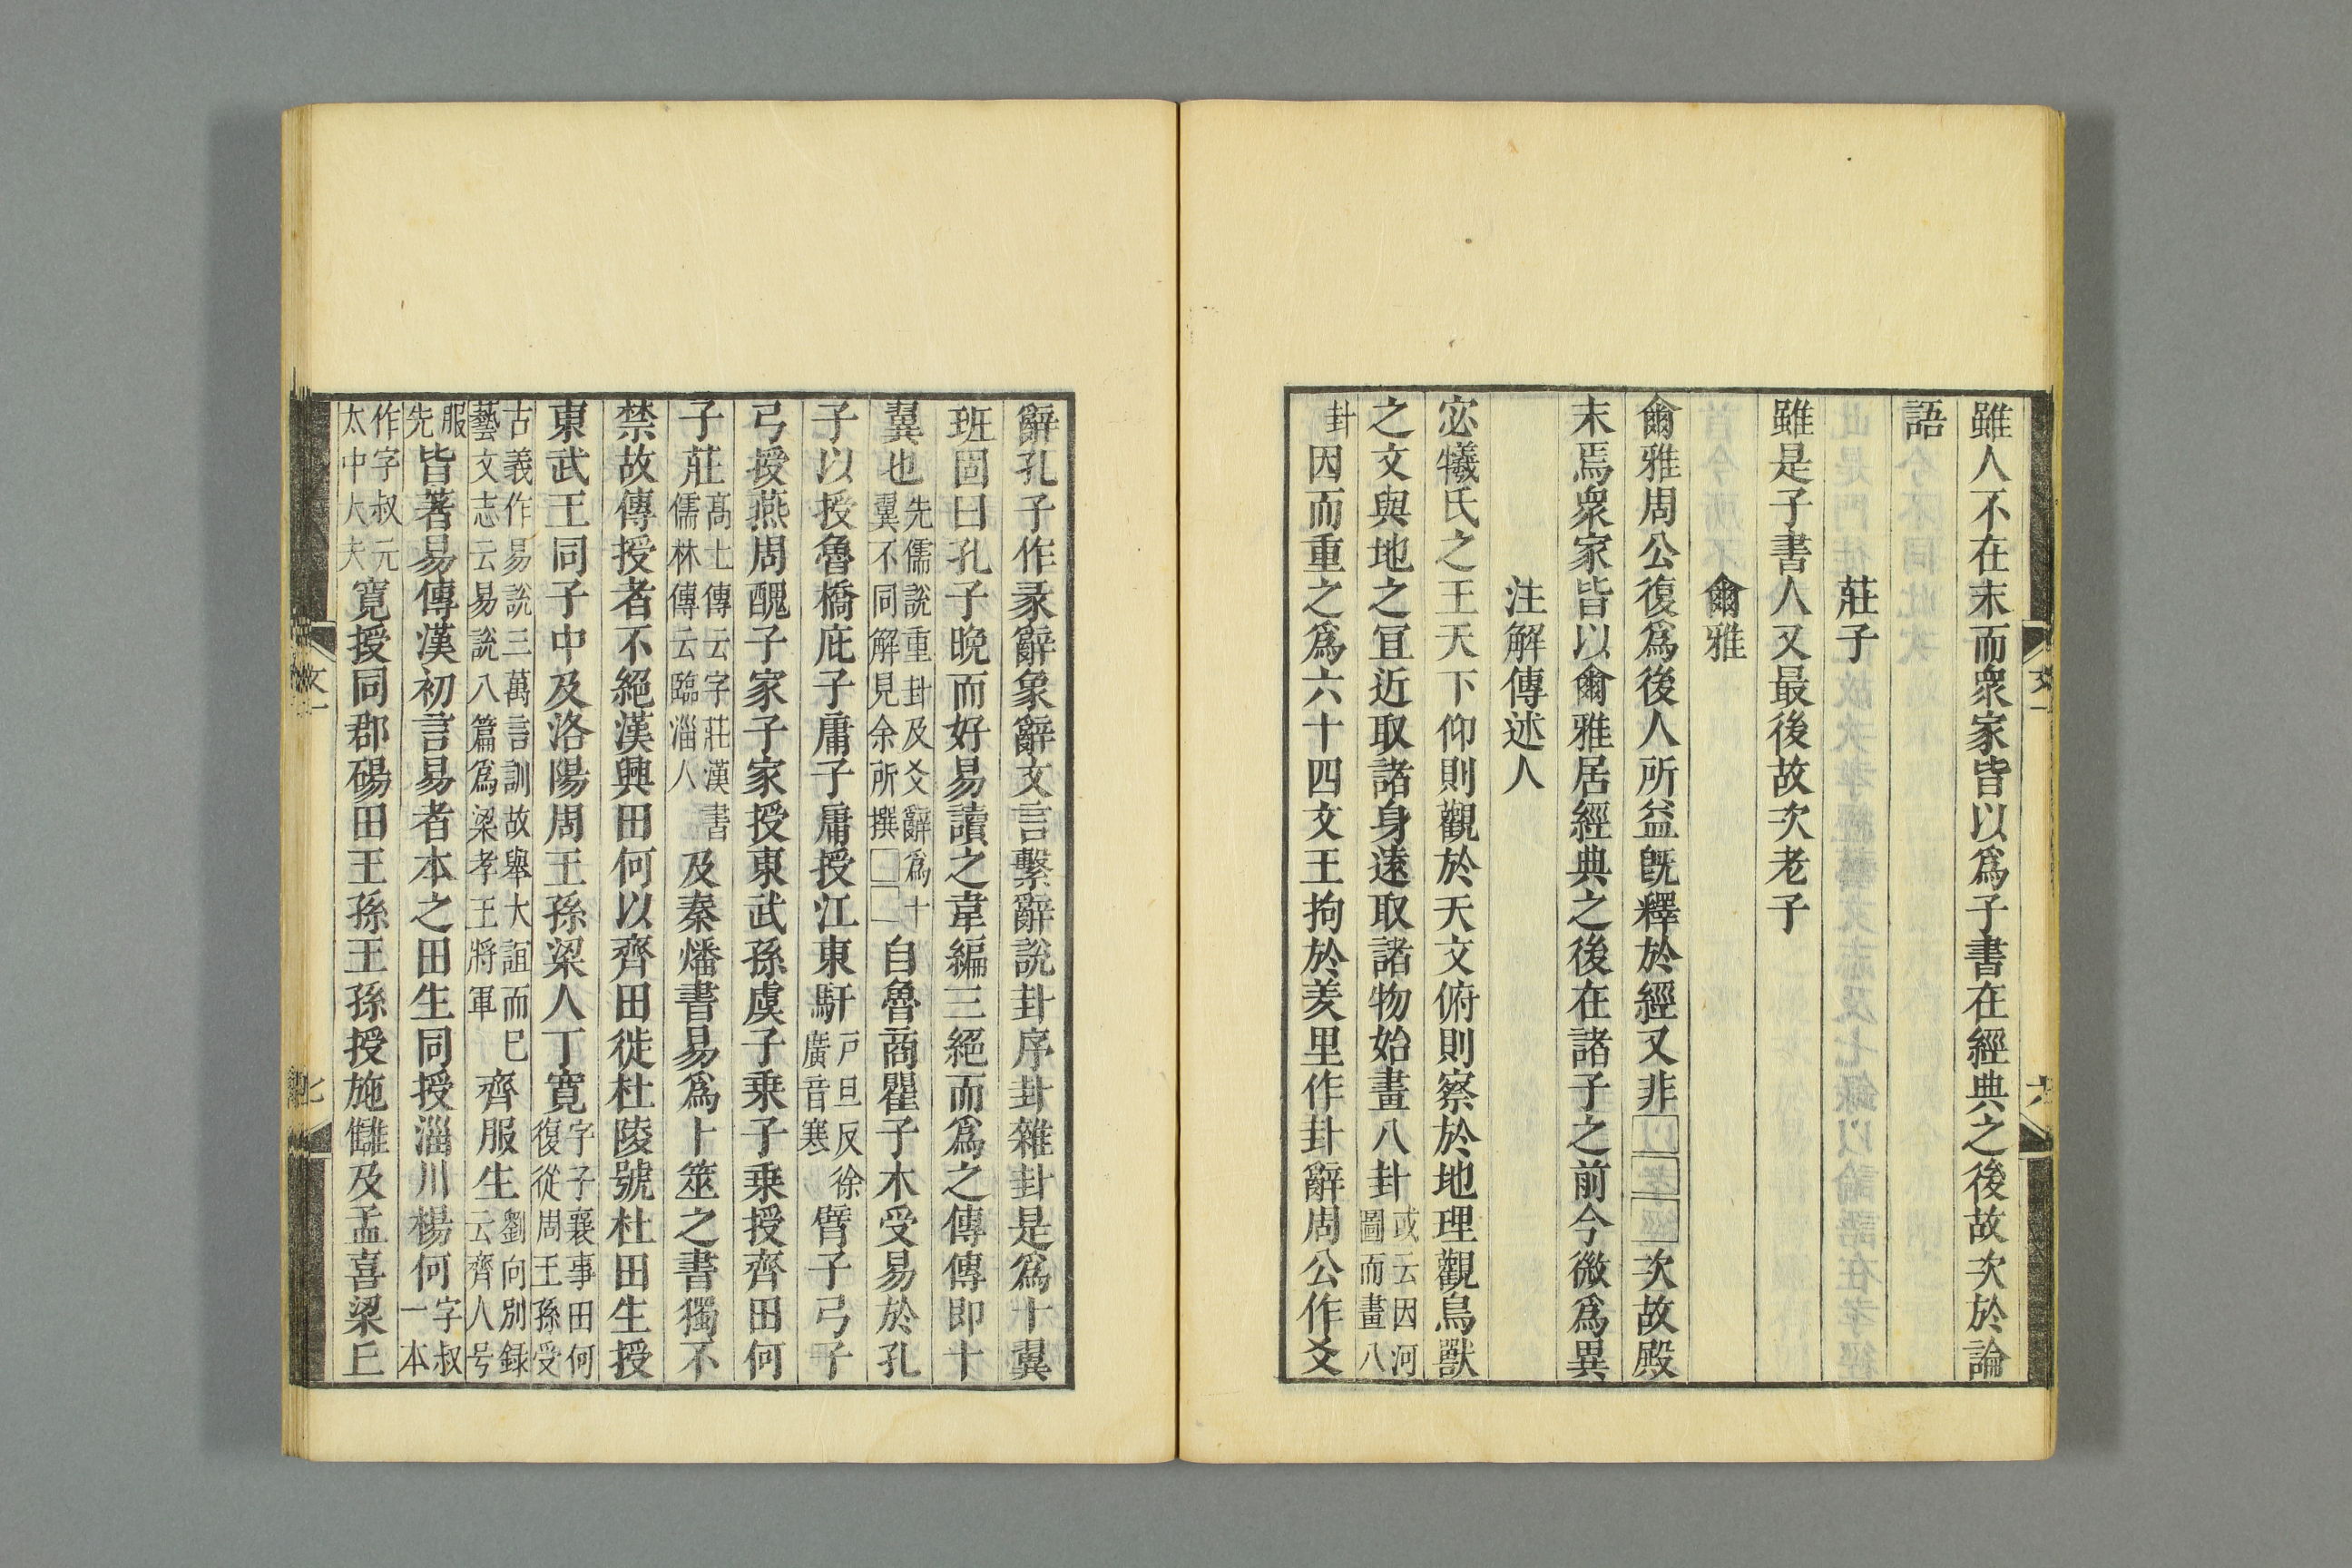 雖人不在末而眾家皆以爲子書在經典之後故次於論
語
莊子
雖是子書人又最後故次老子
爾雅
爾雅周公復爲後人所益既釋於經又非次故殿
末焉眾家皆以爾雅居經典之後在諸子之前今微爲異
注解傳述人
宓犧氏之王天下仰則觀於天文俯則察於地理觀鳥獸
之文與地之宜近取諸身遠取諸物始畫八卦或云因河圖而畫八
卦因而重之爲六十四文王拘於羑里作卦辭周公作爻
辭孔子作彖辭象辭文言繫辭說卦序卦雜卦是爲十翼
班固曰孔子晚而好易讀之韋編三絕而爲之傳傳即十
翼也先儒說重卦及爻辭爲十翼不同解見余所撰自魯商瞿子木受易於孔
子以授魯橋庇子庸子庸授江東馯戶旦反徐廣音寒臂子弓子
弓授燕周醜子家子家授東武孫虞子乗子乗授齊田何
子莊高士傳云字莊漢書儒林傳云臨淄人及秦燔書易爲卜筮之書獨不
禁故傳授者不絕漢興田何以齊田徙杜陵號杜田生授
東武王同子中及洛陽周王孫梁人丁寬字子襄事田何復從周王孫受
古義作易說三萬言訓故舉大誼而已藝文志云易說八篇爲梁孝王將軍齊服生劉向別録云齊人号
服先皆著易傳漢初言易者本之田生同授淄川楊何字叔一本
作字叔元太中大夫寬授同郡碭田王孫王孫授施讎及孟喜梁丘
文一
六
文一
七